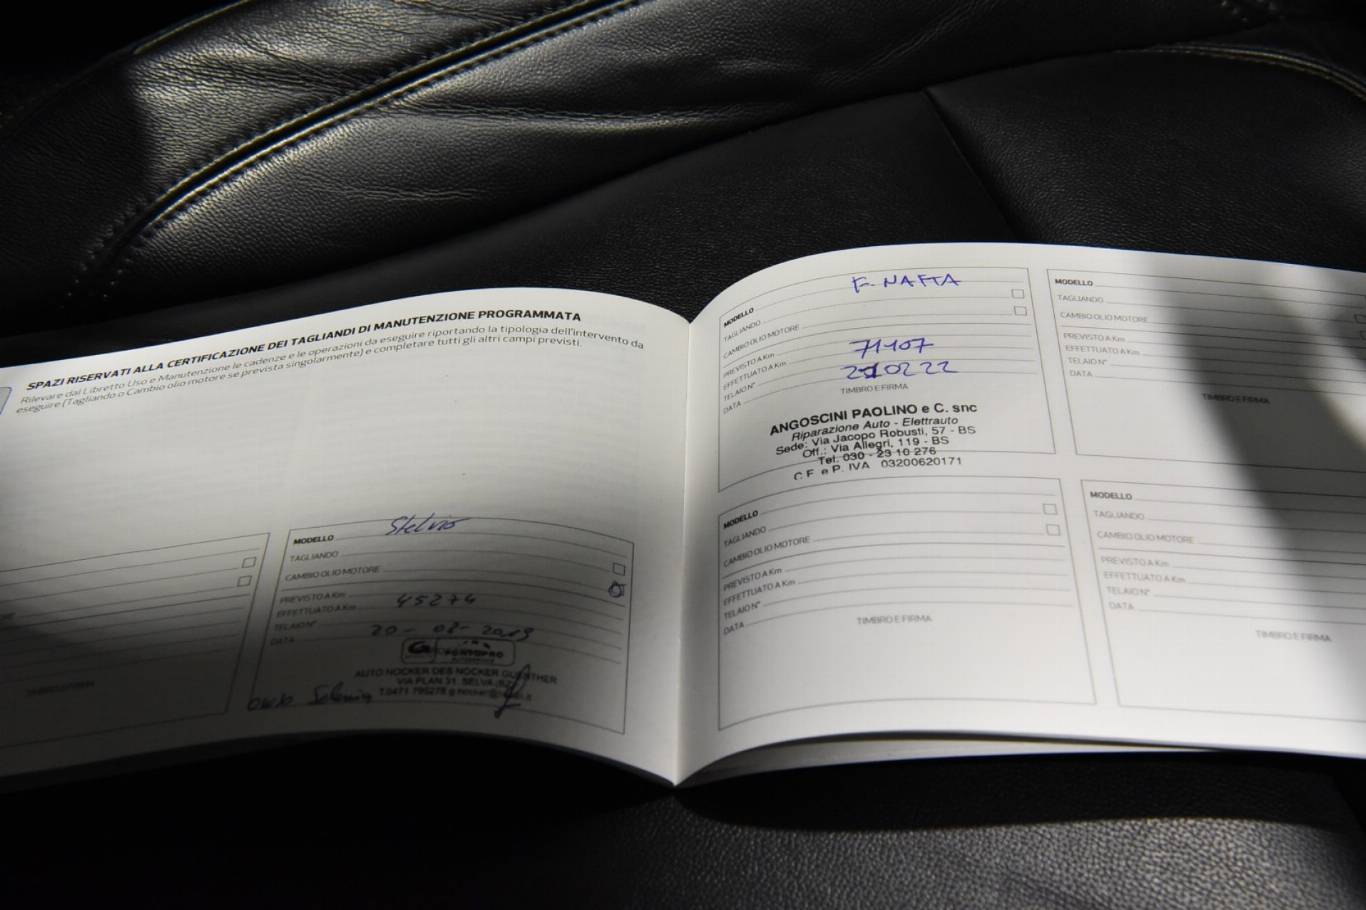 SPAZI RISERVATI ALLA CERTIFICAZIONE DEI TAGLIANDI DI MANUTENZIONE PROGRAMMATA
Rilevare dal Libretto Uso e Manutenzione le cadenze e le operazioni da eseguire riportando la tipologia dell'intervento da
eseguire (Tagliando o Cambio olio motore se prevista singolarmente) e completare tutti gli altri campi previsti.
TIMBRO E FIRMA
MODELLO Stelvio
TAGLIANDO
CAMBIO OLIO MOTORE
PREVISTO A Km
EFFETTUATO A Km 45274
TELAIO N°
DATA 20-08-2019
AUTO NOCKER DES NOCKER GUENTHER
VIA PLAN 31, SELVA (BZ)
T.0471 795278
MODELLO F-NAFTA
TAGLIANDO
CAMBIO OLIO MOTORE
PREVISTO A Km
EFFETTUATO A Km 71107
TELAIO N°
DATA 210222
TIMBRO E FIRMA
ANGOSCINI PAOLINO e C. snc
Riparazione Auto - Elettrauto
Sede: Via Jacopo Robusti, 57 - BS
Off.: Via Allegri, 119 - BS
Tel. 030 - 23 10 276
C.F. e P. IVA 03200620171
MODELLO
TAGLIANDO
CAMBIO OLIO MOTORE
PREVISTO A Km
EFFETTUATO A Km
TELAIO N°
DATA
TIMBRO E FIRMA
MODELLO
TAGLIANDO
CAMBIO OLIO MOTORE
PREVISTO A Km
EFFETTUATO A Km
TELAIO N°
DATA
TIMBRO E FIRMA
MODELLO
TAGLIANDO
CAMBIO OLIO MOTORE
PREVISTO A Km
EFFETTUATO A Km
TELAIO N°
DATA
TIMBRO E FIRMA